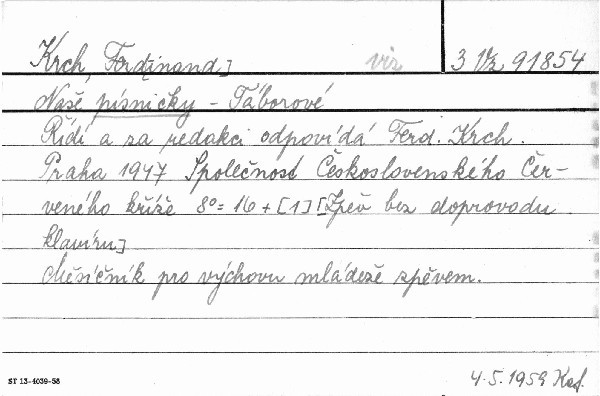 Krch, Ferd[inand] viz 3 Vz 91854
Naše písničky - Táborové
Řídí a za redakci odpovídá Ferd. Krch.
Praha 1947 Společnost Československého Čer-
veného kříže 8°= 16 + [1] [Zpěv bez doprovodu
klavíru]
Měsíčník pro výchovu mládeže zpěvem.
ST 13-4039-58
4.5.1959 Kaf.